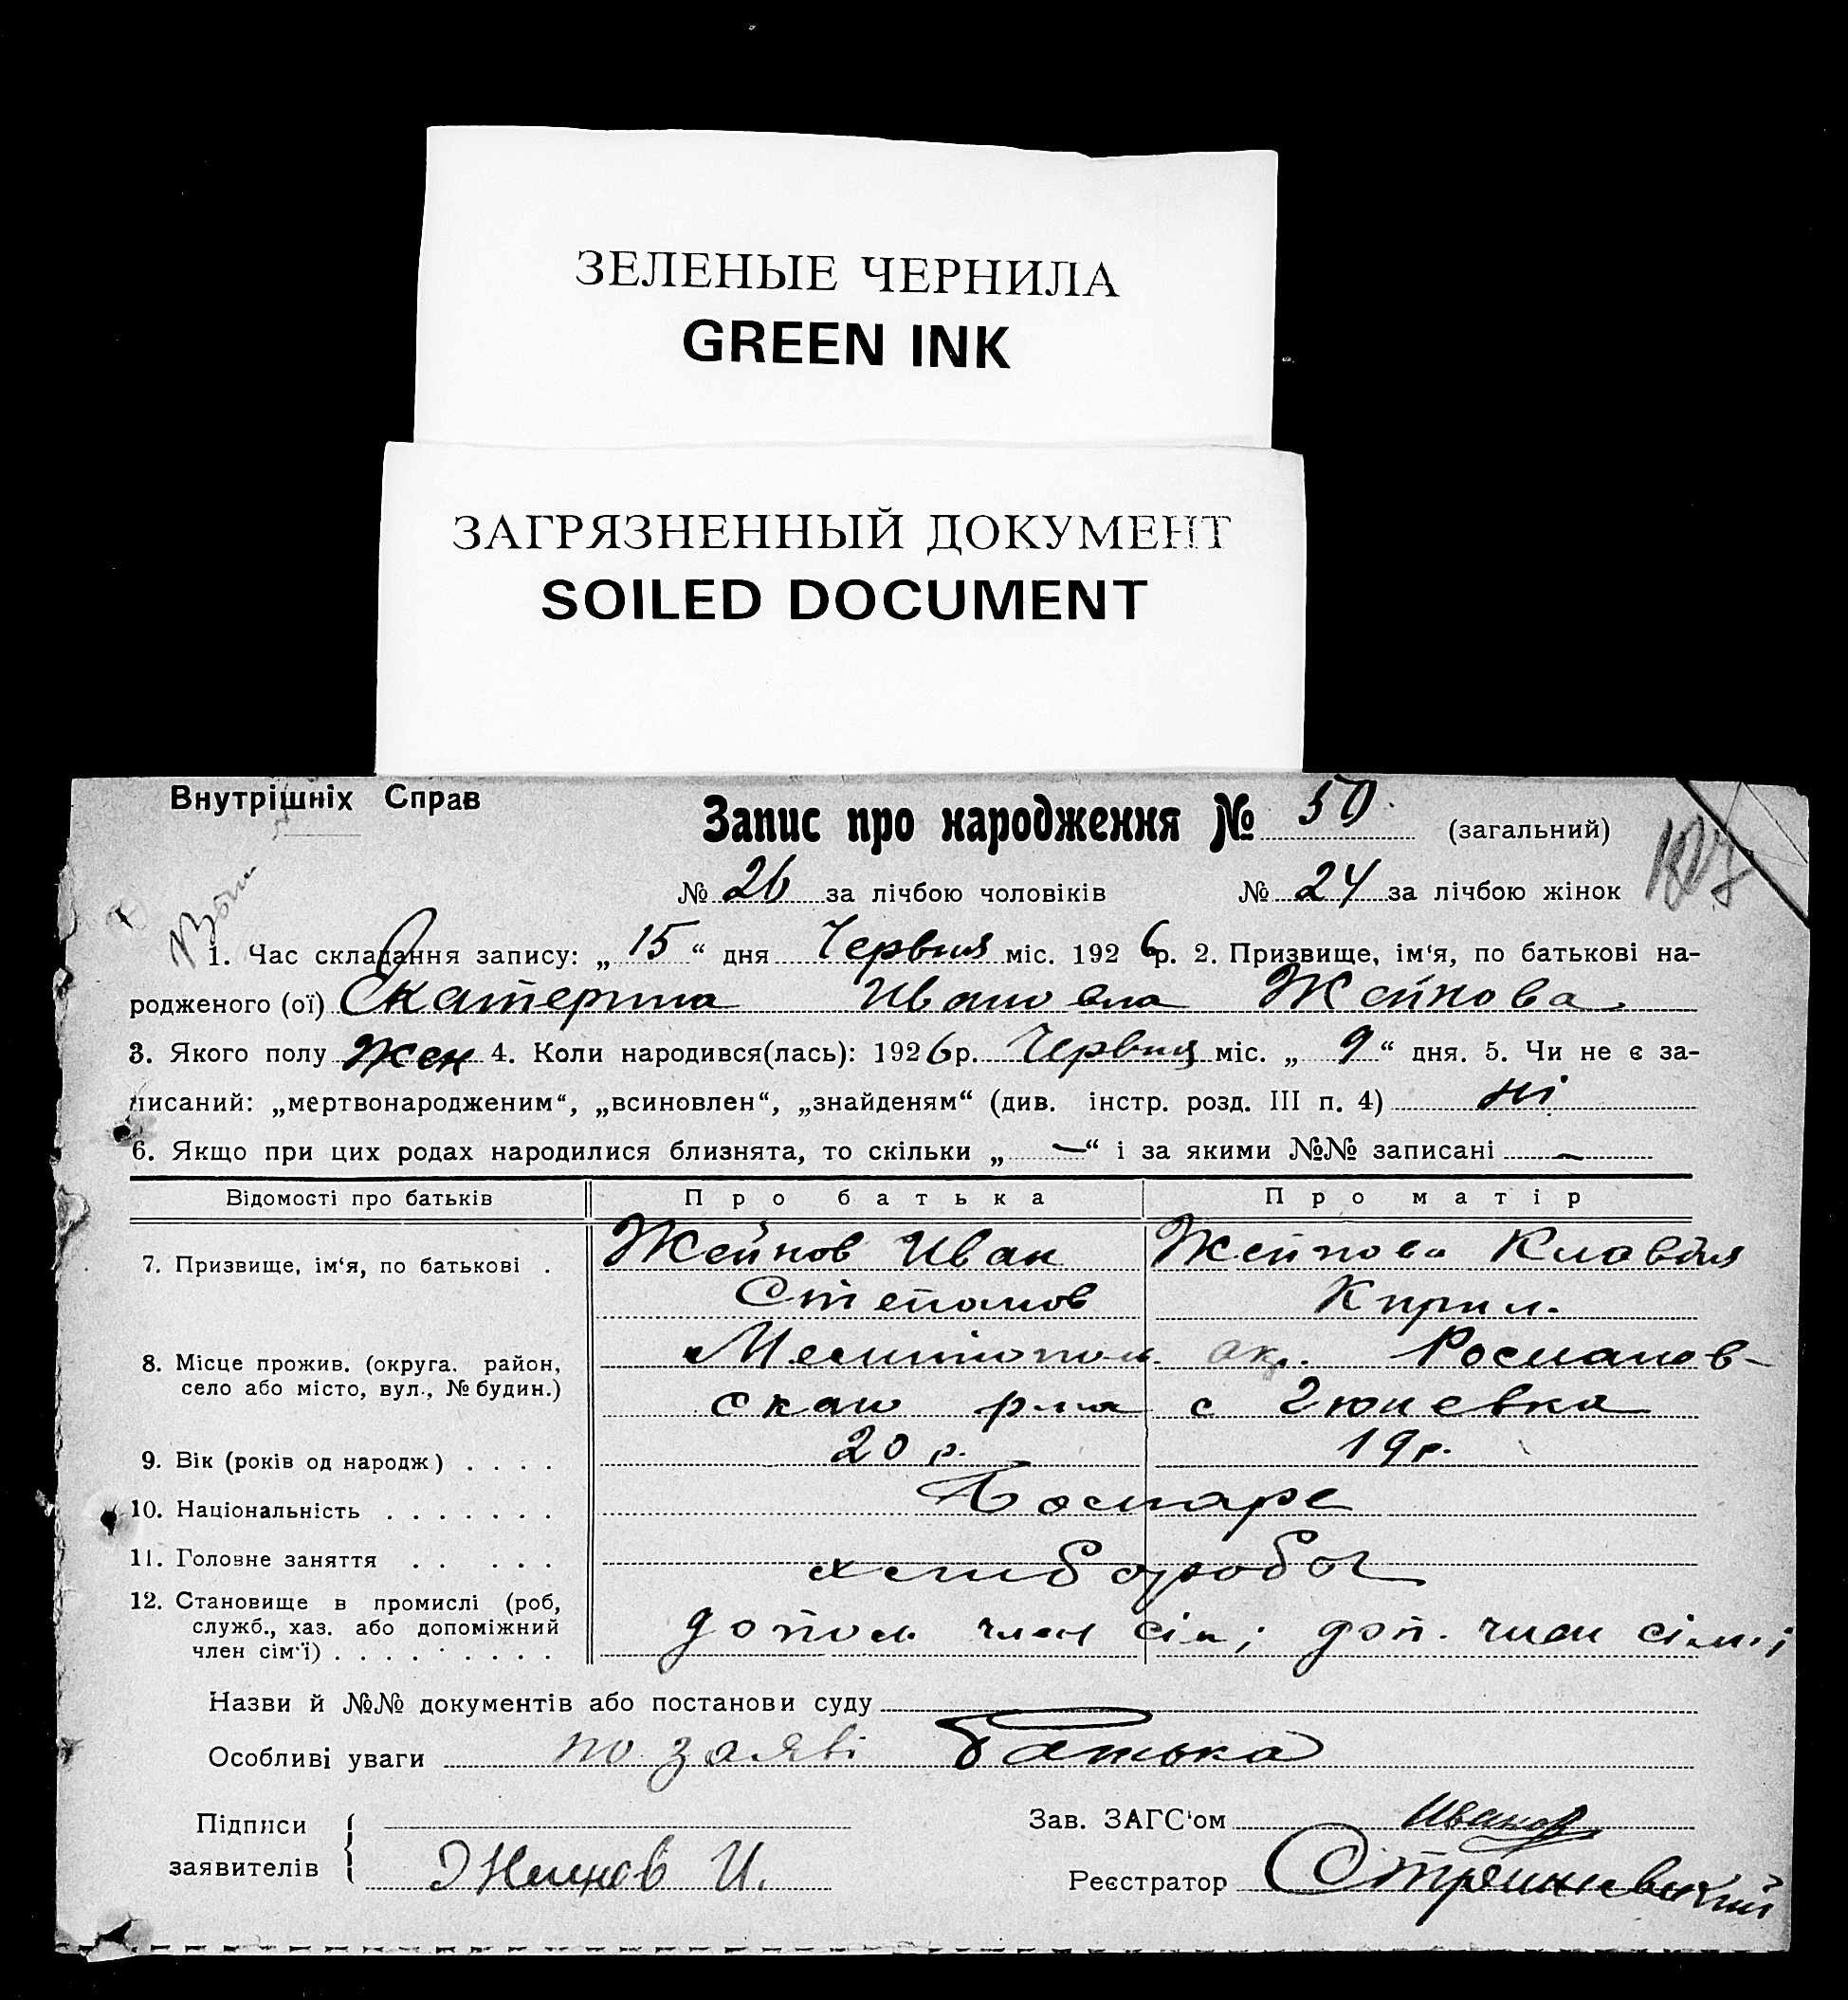 ЗЕЛЕНЫЕ ЧЕРНИЛА
GREEN INK
ЗАГРЯЗНЕННЫЙ ДОКУМЕНТ
SOILED DOCUMENT
Внутрішніх Справ
Запис про народження № 50 (загальний)
№ 26 за лічбою чоловіків № 24 за лічбою жінок
1. Час складання запису: „ 15 “ дня Червня міс. 1926 р. 2. Призвище, ім‘я, по батькові на-
родженого (ої) Екатерина Ивановна Жейнова
3. Якого полу жен 4. Коли народився(лась): 1926 р. Червня міс. „ 9 “ дня. 5. Чи не є за-
писаний: „мертвонародженим“, „всиновлен“, „знайденям“ (див. інстр. розд. III п. 4) ні
6. Якщо при цих родах народилися близнята, то скільки „ — “ і за якими №№ записані —
Відомості про батьків Про батька Про матір
7. Призвище, ім‘я, по батькові . Жейнов Иван Жейнова Клавдия
Степанов Кирил.
8. Місце прожив. (округа. район, Мелитопол. окр. Романов-
село або місто, вул., № будин.) ская р-на с
9. Вік (років од народж) . . . . 20 р. 19 р.
10. Національність . . . . . . . Болгаре
11. Головне заняття . . . . . хлибороби
12. Становище в промислі (роб,
служб., хаз. або допоміжний допом член сім; доп. член сім.;
член сім‘ї) . . . . . . . . . .
Назви й №№ документів або постанови суду
Особливі уваги по заяві батька
Підписи Зав. ЗАГС‘ом Иванов
заявителів Жейнов И. Реєстратор